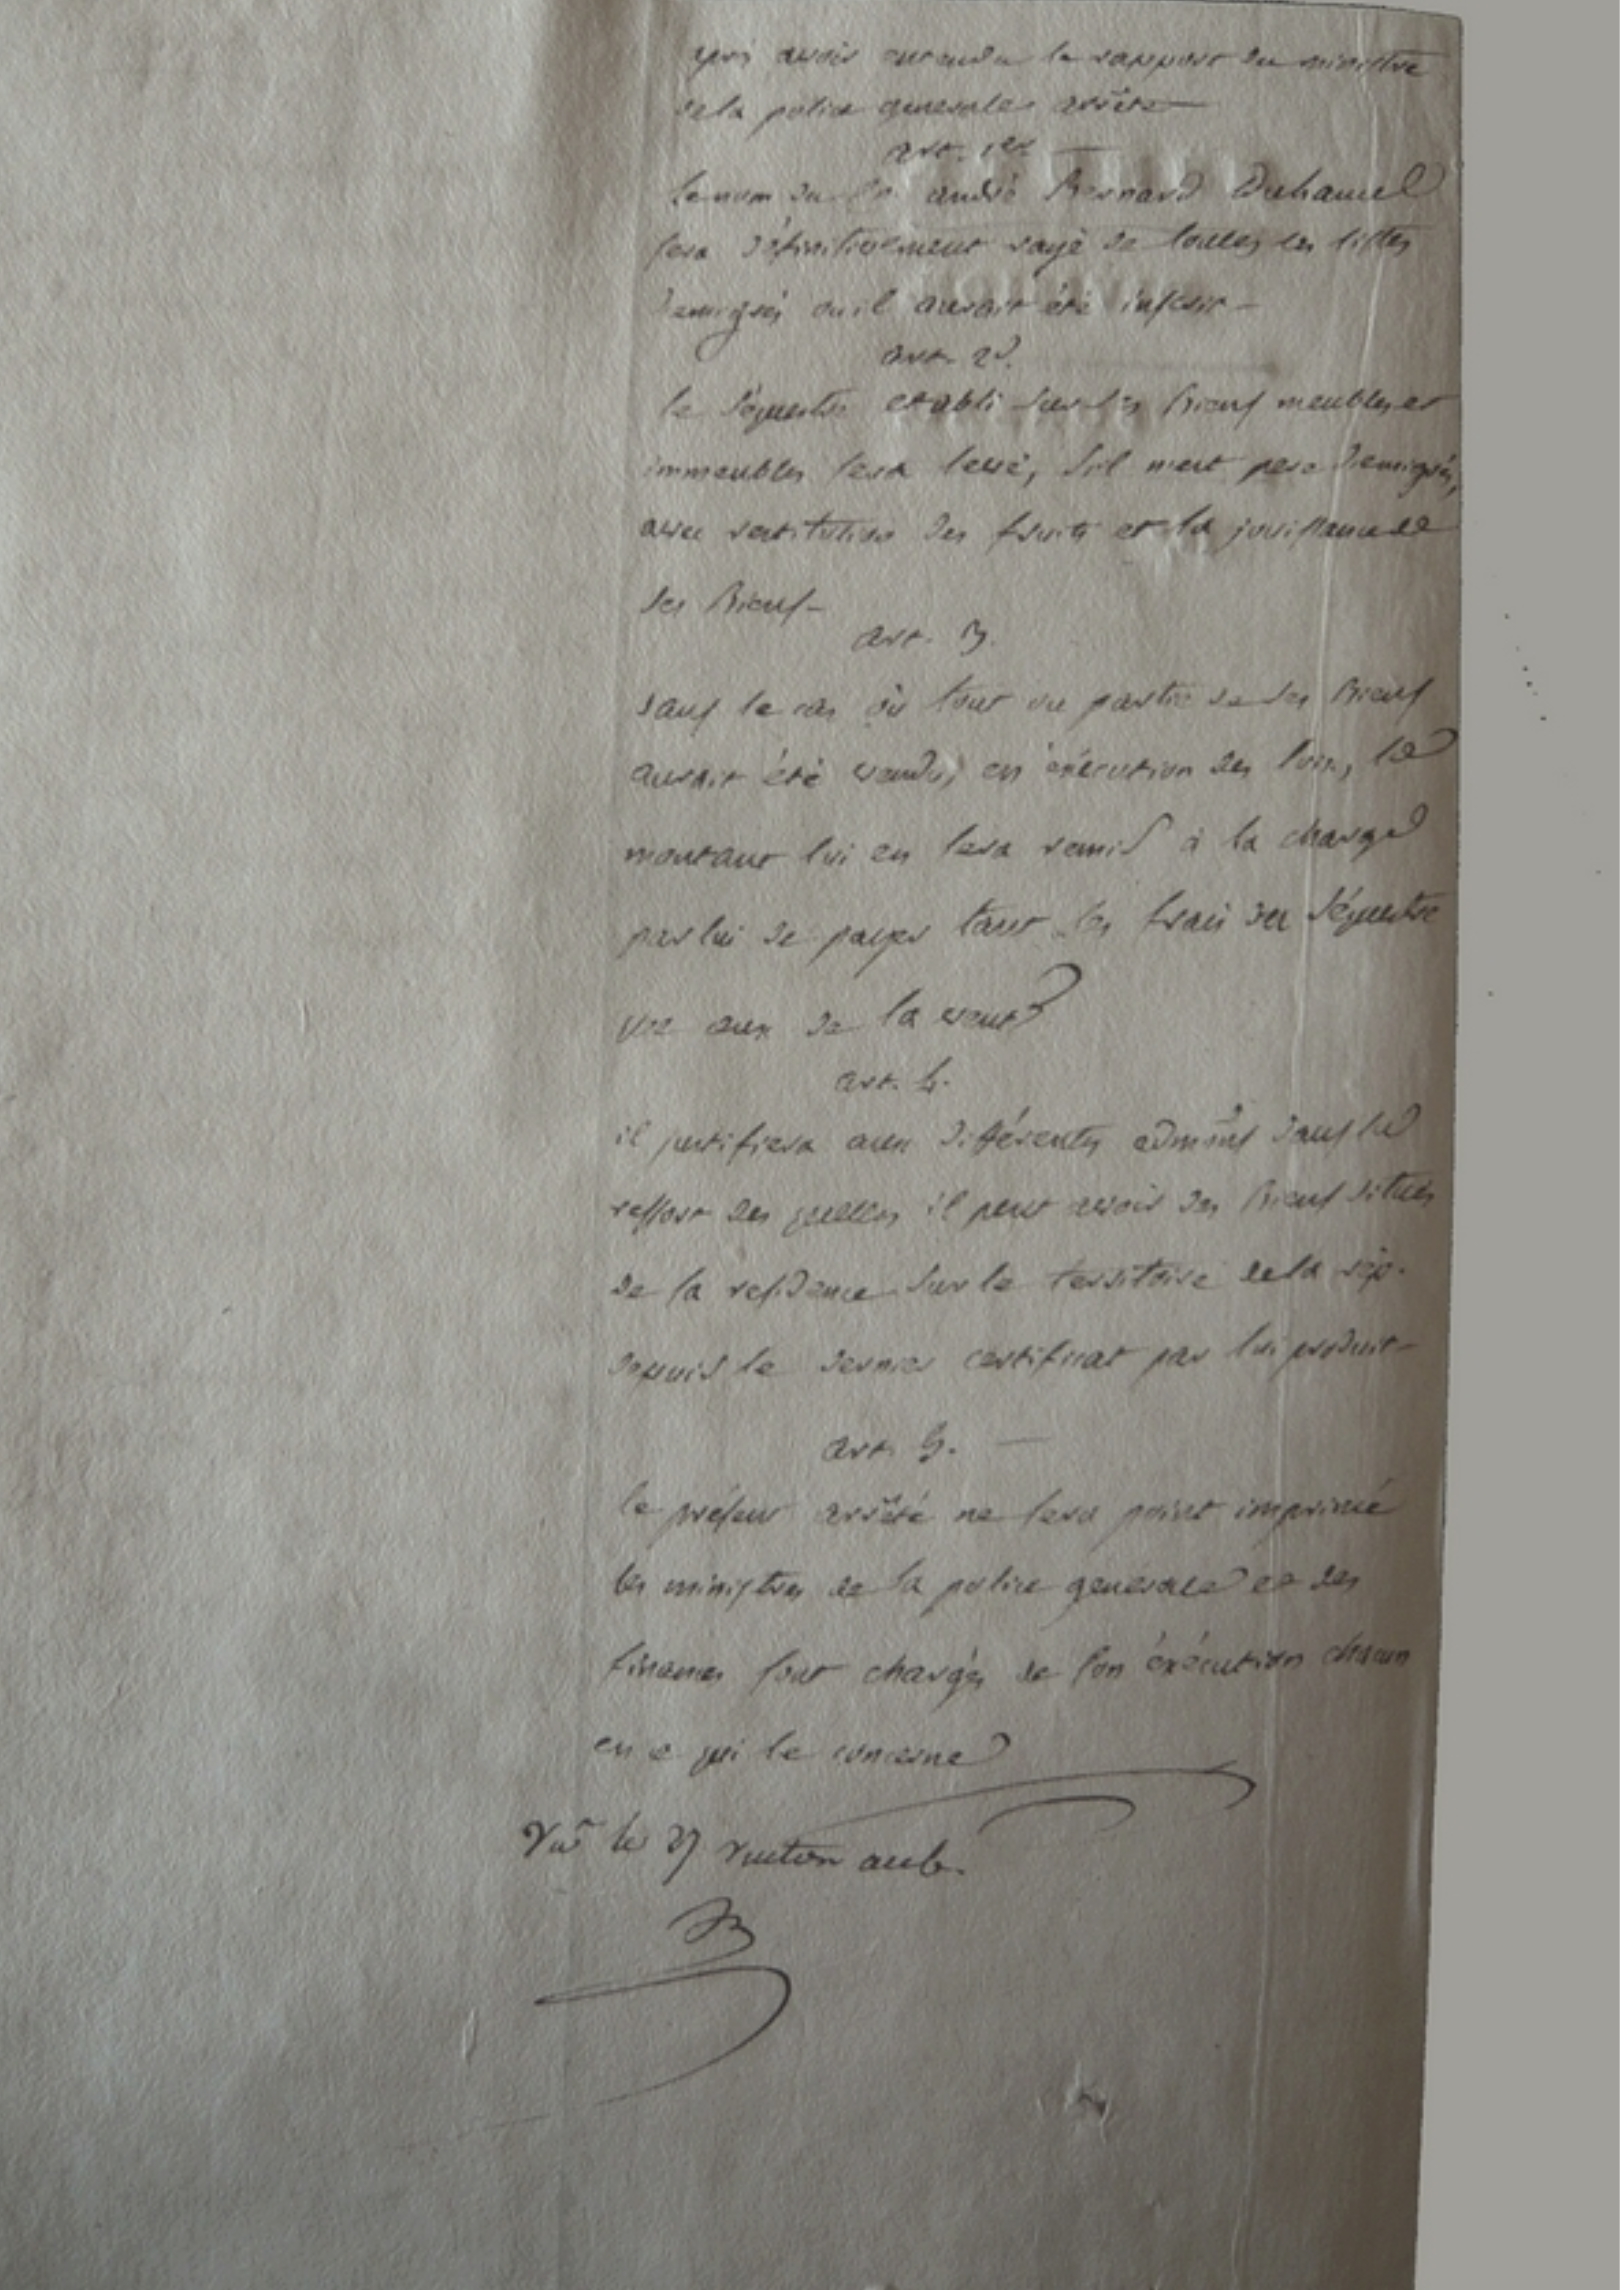 après avoir entendu le rapport du ministre
de la police generale arrête
art. 1er.
le nom du Cn. andré Bernard Duhamel
sera définitivement rayé de toutes les listes
d'emigrés ou il aurait été inscrit
art. 2d.
le séquestre etabli sur ses Biens meubles et
immeubles sera levé, s'il n'est pere d'emigrés,
avec restitution des fruits et la jouissance de
ses Biens
art. 3.
sauf le cas où tout ou partie de ses Biens
aurait été vendu, en éxécution des loix, le
montant lui en sera remis à la charge
par lui de payer tant les frais du séquestre
que ceux de la vente
art. 4.
il justifiera aux différentes admons dans le
ressort des quelles il peut avoir des Biens situés
de sa residence sur le territoire de la rép.
depuis le dernier certificat par lui produit
art. 5.
le présent arrêté ne sera point imprimé
les ministres de la police generale et des
finances sont chargés de son éxécution chacun
en ce qui le concerne
Vu le 27 an 6.